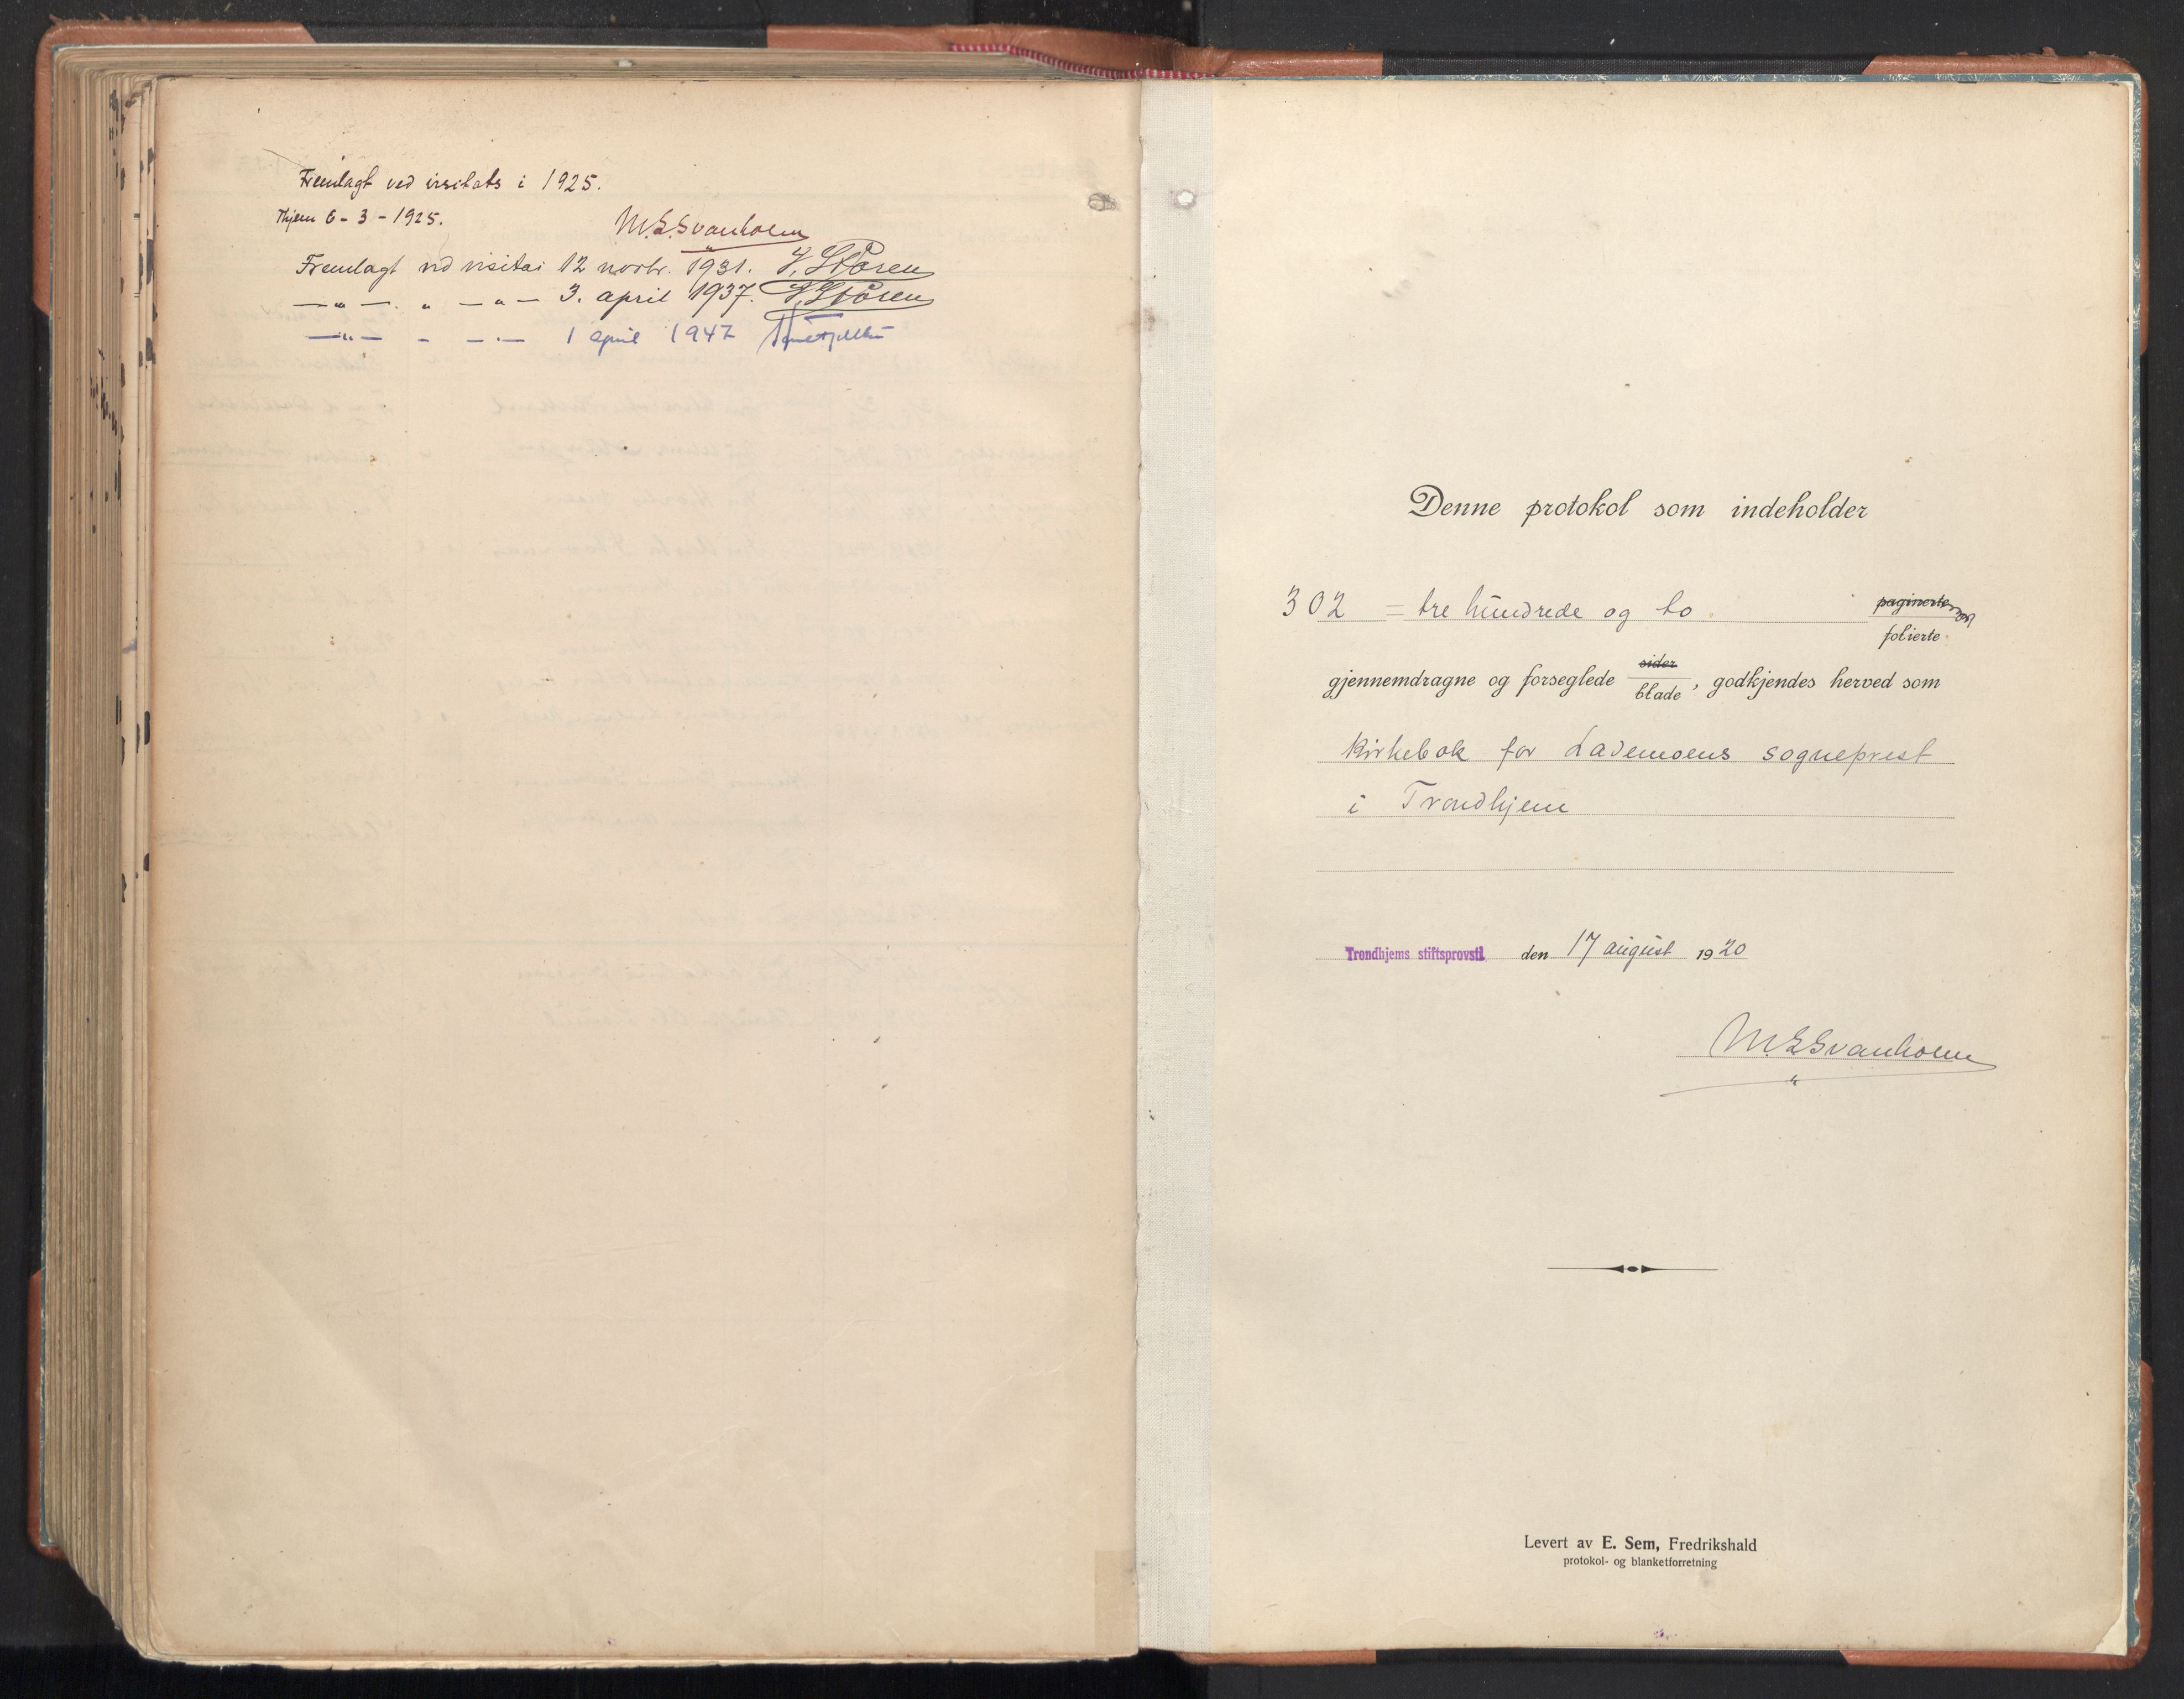 Fremlagt ved visitats i 1925.
Thjem 6-3-1925.
M.E.Svanholm
Fremlagt ved visitas 12 novbr. 1931. J. Støren
— „ — . „ — „ — 3. april 1937. J. Støren
— „ — - — . — 1 april 1947
Denne protokol som indeholder
302 = tre hundrede og to paginerte
folierte
gjennemdragne og forseglede sider
blade, godkjendes herved som
Kirkebok for Lademoens sogneprest
i Trondhjem
Trondhjems stiftsprovsti den 17 august 1920
M.E.Svanholm
Levert av E. Sem, Fredrikshald
protokol- og blanketforretning